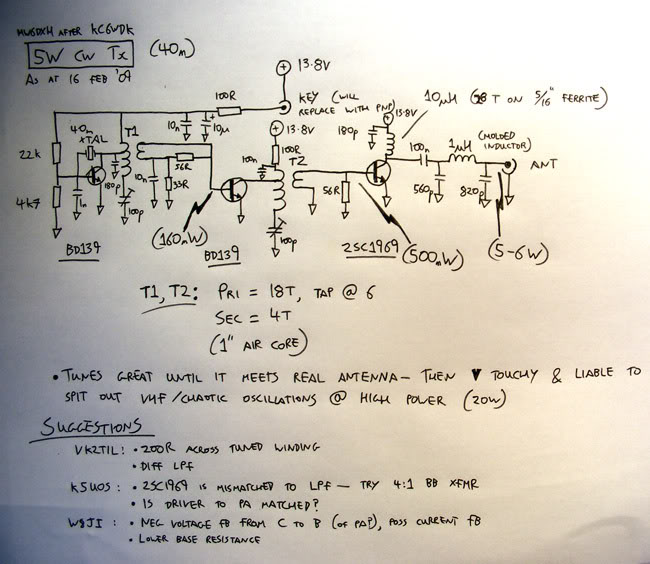 MW6DXH AFTER KC6WDK
5W CW TX (40m)
AS AT 16 FEB '09
13.8V
100R
KEY (WILL
REPLACE WITH PNP)
10n
10µ
40m
XTAL
T1
22k
4k7
1n
180p
100p
10n
56R
33R
BD139
(160mW)
13.8V
100R
100n
T2
BD139
100p
56R
13.8V
180p
10µH (28 T ON 5/16" FERRITE)
100n
1µH (MOLDED
INDUCTOR)
560p
820p
ANT
2SC1969
(500mW)
(5-6W)
T1, T2: PRI = 18T, TAP @ 6
SEC = 4T
(1" AIR CORE)
• TUNES GREAT UNTIL IT MEETS REAL ANTENNA – THEN V TOUCHY & LIABLE TO
SPIT OUT VHF/CHAOTIC OSCILLATIONS @ HIGH POWER (20W)
SUGGESTIONS
VK2TIL: • 200R ACROSS TUNED WINDING
• DIFF LPF
K5UOS: • 2SC1969 IS MISMATCHED TO LPF – TRY 4:1 BB XFMR
• IS DRIVER TO PA MATCHED?
W8JI: • NEG VOLTAGE FB FROM C TO B (OF PA), POSS CURRENT FB
• LOWER BASE RESISTANCE